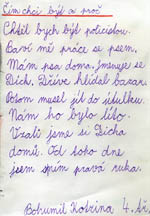 Čím chci být a proč
Chtěl bych být policistou.
Baví mě práce se psem.
Mám psa doma. Jmenuje se
Dick. Dříve hlídal bazar.
Potom musel jít do útulku.
Nám ho bylo líto.
Vzali jsme si Dicka
domů. Od toho dne
jsem jeho pravá ruka.
Bohumil Kotrina 4. tř.